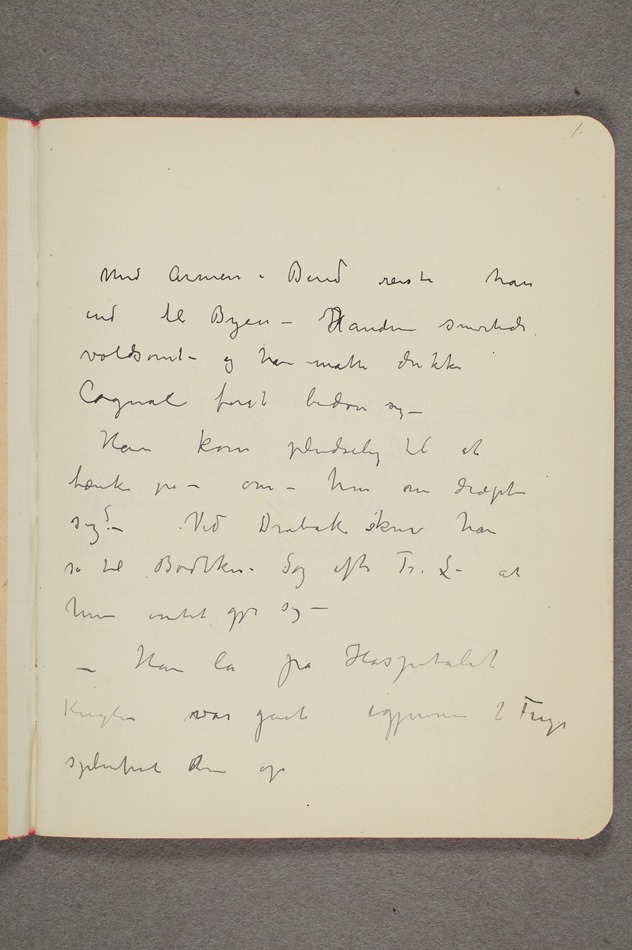 1.
Med Armen i Bind reiste han
ind til Byen – Handen smertede
voldsomt – og han måtte drikke
Cognac først bedøve sig –
Han kom pludselig til at
tænke på – om – hun om dræpte
sig? – Ved Drøbak skrev han
så til Bødtker – Søg efter Fr. L – at
hun intet gjør sig –
– Han lå på Hospitalet
Kuglen var gået igjennem 2 Finger
splintret den op